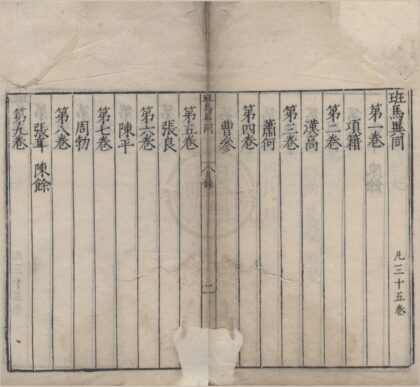 班馬異同
凡三十五卷
第一卷
項籍
第二卷
漢高
第三卷
蕭何
第四卷
曹參
班馬異同 目錄 一
第五卷
張良
第六卷
陳平
第七卷
周勃
第八卷
張耳 陳餘
第九卷